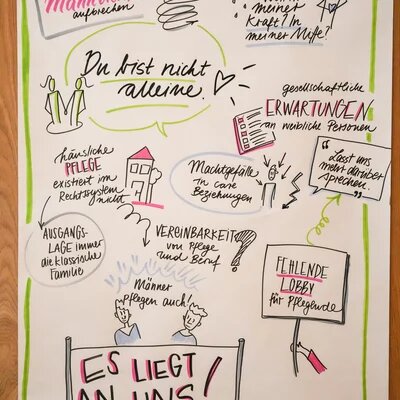 aufbrechen
meiner
Kraft? In
meiner Muße?
Du bist nicht
alleine.
gesellschaftliche
ERWARTUNGEN
an weibliche Personen
häusliche
PFLEGE
existiert im
Rechtssystem
nicht
Machtgefälle
in Care
Beziehungen
"Lasst uns
mehr darüber
sprechen."
AUSGANGS-
LAGE immer
die klassische
Familie
VEREINBARKEIT
von Pflege
und Beruf
?
Männer
pflegen auch!
FEHLENDE
LOBBY
für Pflegende
ES LIEGT
AN UNS!